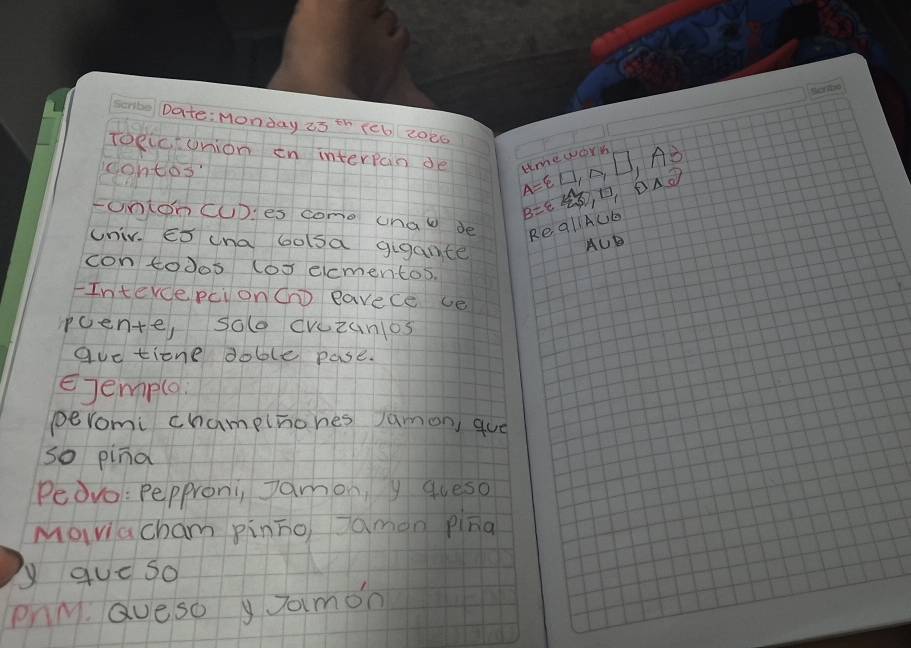 Scribe
Date: Monday 23 th feb 2026
Topic: union en interpan de
contos.
-Unión (U): es como una u de
univ. es una bolsa gigante
con todos los elementos.
-Intercepcion (∩) parece ue
puente, solo cruzan los
que tiene doble pase.
Ejemplo:
peromi champiñones Jamon, que
so piña
Pedro: Pepproni, Jamon, y queso
Maria cham pinño, Jamon piña
y que so
P∩M: Queso y Jamón
Scribe
Hmework
A={□, △, □, A
B={ , □,
Reall AUb
AUB